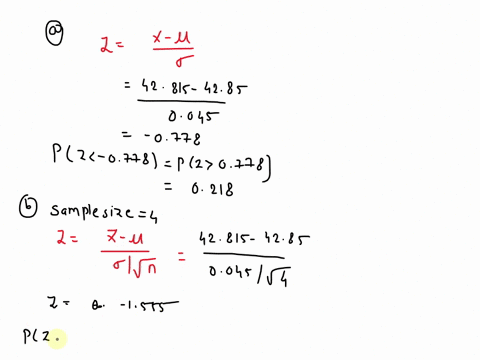 (a)
Z = x-μ / σ
= 42.815-42.85 / 0.045
= -0.778
P(Z<-0.778) = P(Z>0.778)
= 0.218
(b) Sample size=4
Z = x̄-μ / σ/√n = 42.815-42.85 / 0.045/√4
Z= -1.555
P(Z